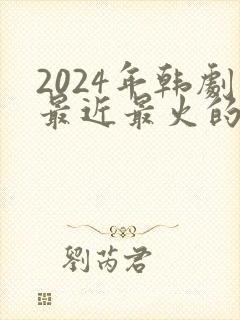 2024年韩劇
最近最火的
劉芮君